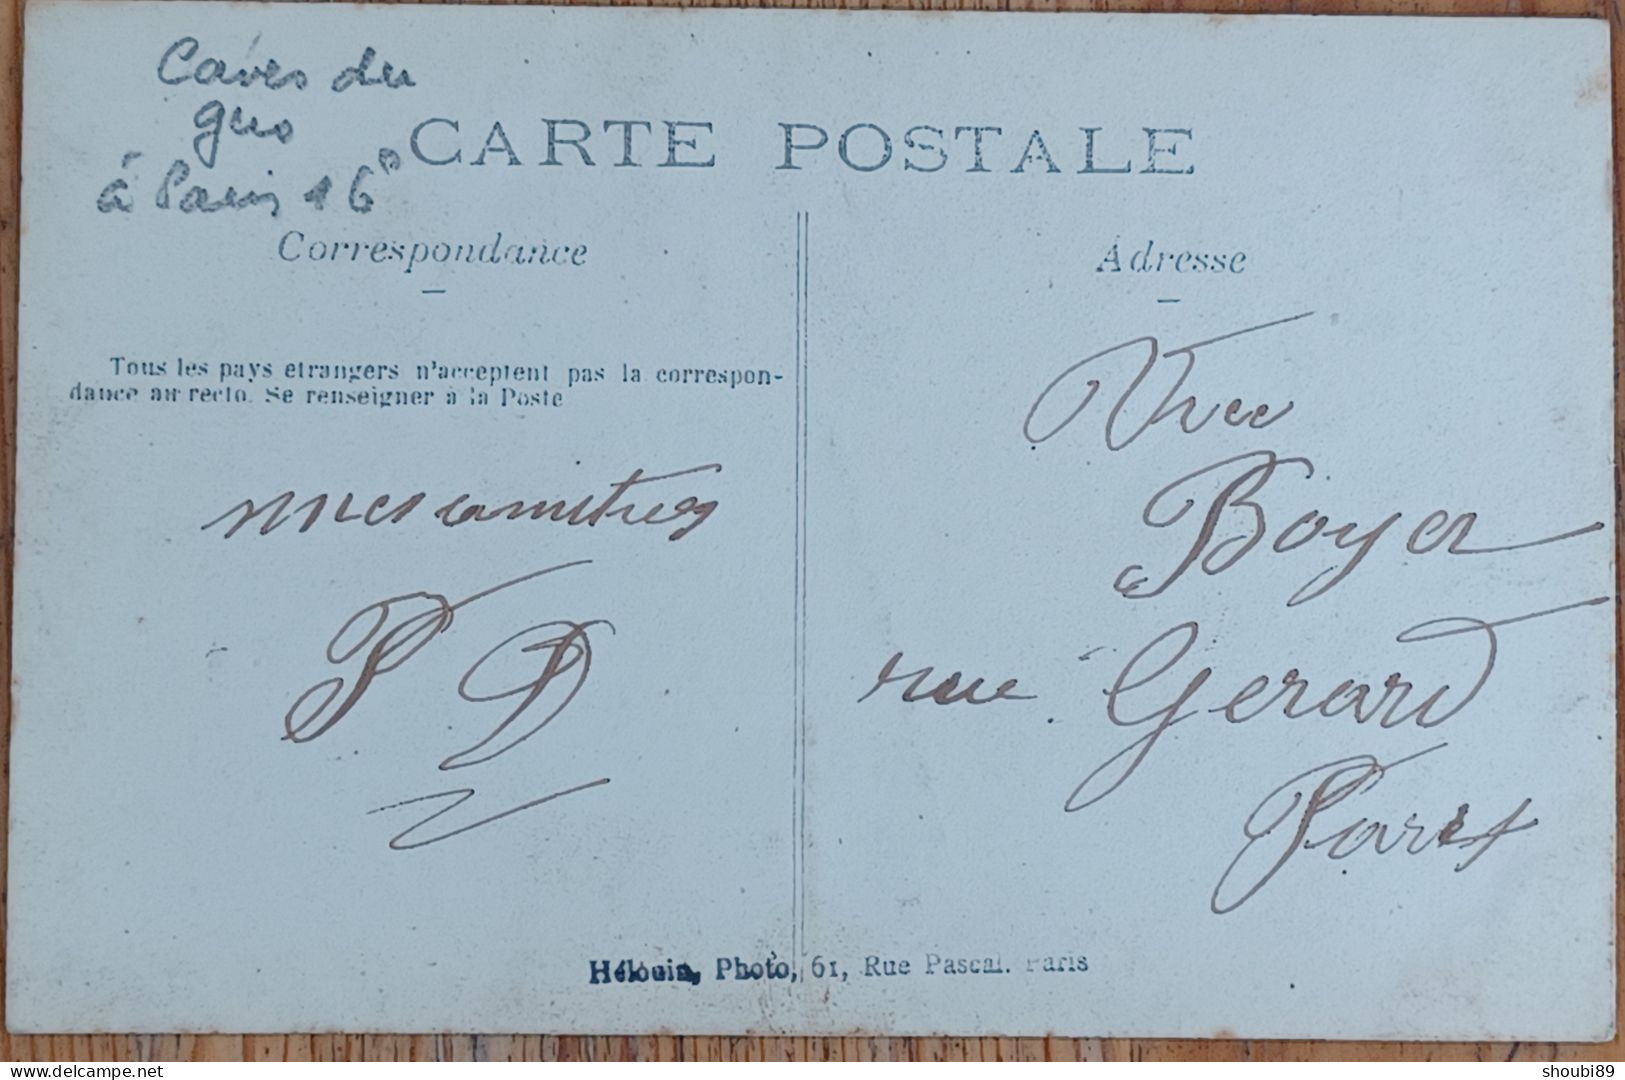 Caves du
gros
à Paris 16e
CARTE POSTALE
Correspondance
Tous les pays étrangers n'acceptent pas la correspon-
dance au recto. Se renseigner à la Poste
mes amitiés
P D
Adresse
Vve
Boyer
rue Gerard
Paris
Hélouin, Photo, 61, Rue Pascal. Paris
shoubi89